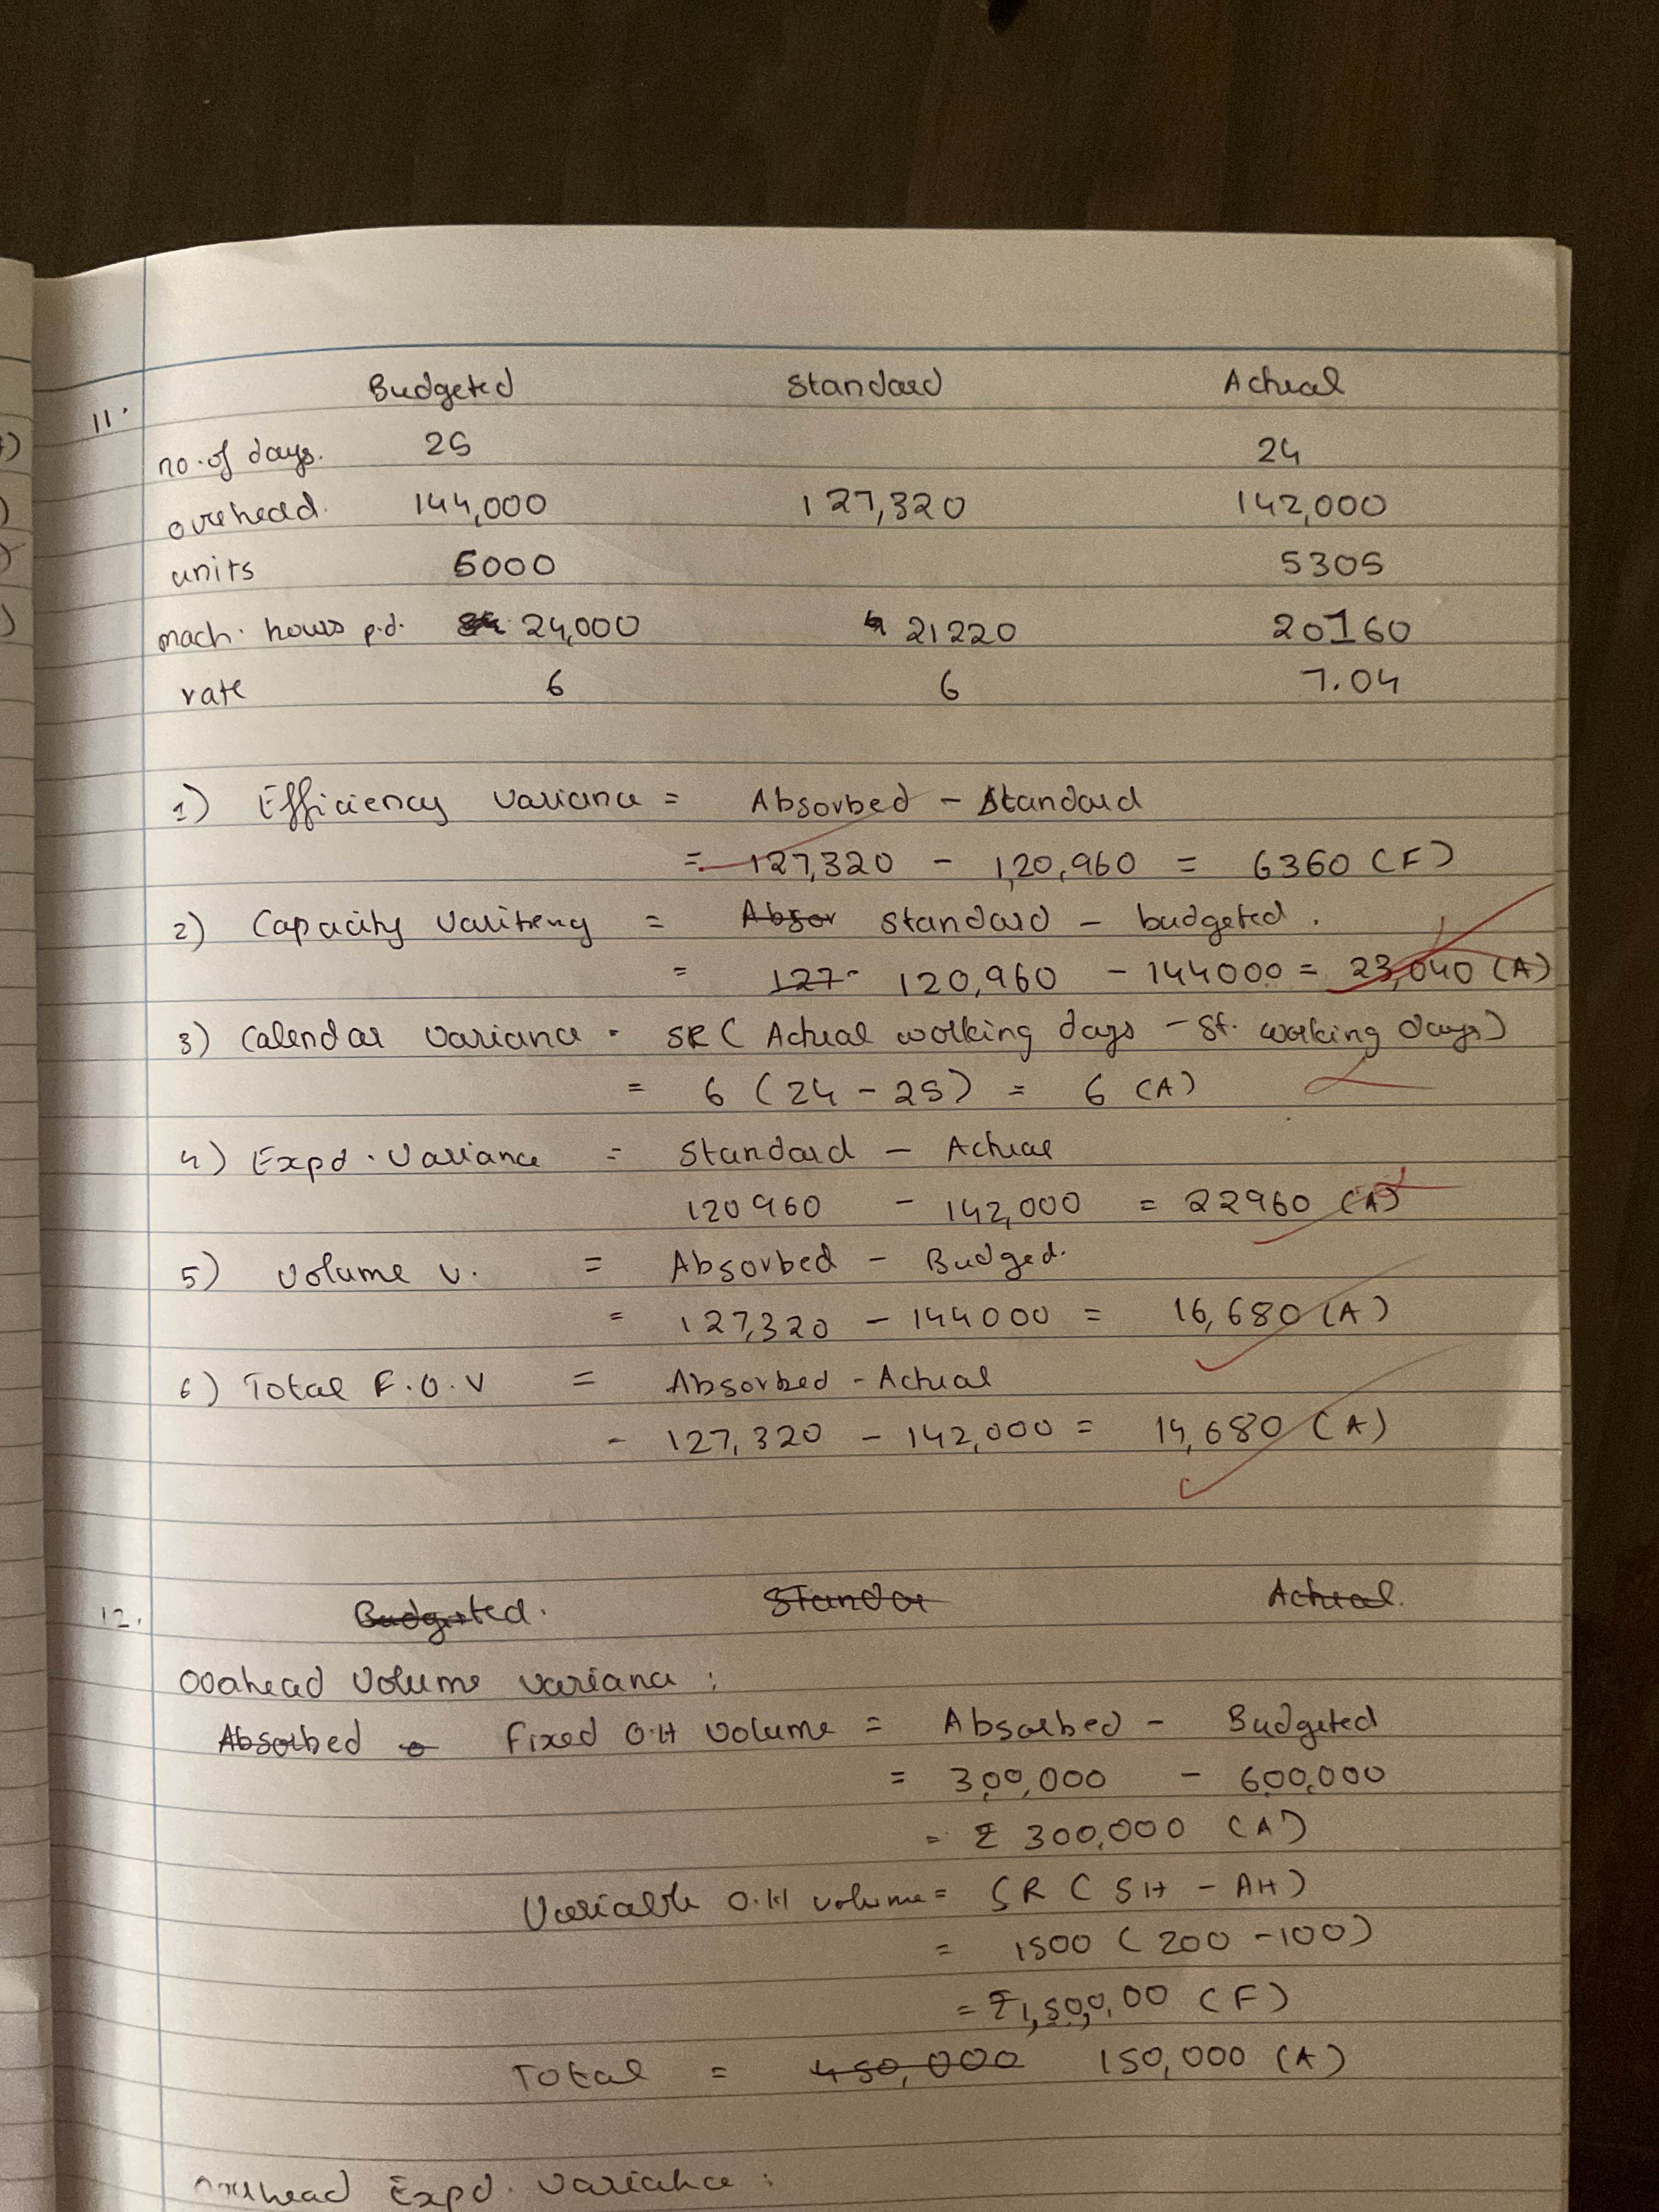 Budgeted Standard Actual
11.
no. of days. 25 24
overhead. 144,000 127,320 142,000
units 6000 5305
mach. hours p.d. 24,000 21220 20160
rate 6 6 7.04
1) Efficiency variance = Absorbed - Standard
= 127,320 - 1,20,960 = 6360 (F)
2) Capacity = Absor Standard - budgeted.
= 127- 120,960 - 144000 = 23,040 (A)
3) Calendar variance = SR ( Actual working days - St. working days)
= 6 (24 - 25) = 6 (A)
4) Expd. Variance = Standard - Actual
120960 - 142,000 = 22960 (A)
5) Volume v. = Absorbed - Budged.
= 127,320 - 144000 = 16,680 (A)
6) Total F.O.V = Absorbed - Actual
- 127,320 - 142,000 = 14,680 (A)
12. Budgeted. Standar Actual.
Ovahead Volume variance :
Absorbed Fixed O.H volume = Absorbed - Budgeted
= 3,00,000 - 6,00,000
= ₹ 300,000 (A)
Variable O.H volume = SR ( SH - AH)
= 1500 ( 200 - 100)
= ₹1,50,0,00 (F)
Total = 450,000 150,000 (A)
overhead Expd. Variance :